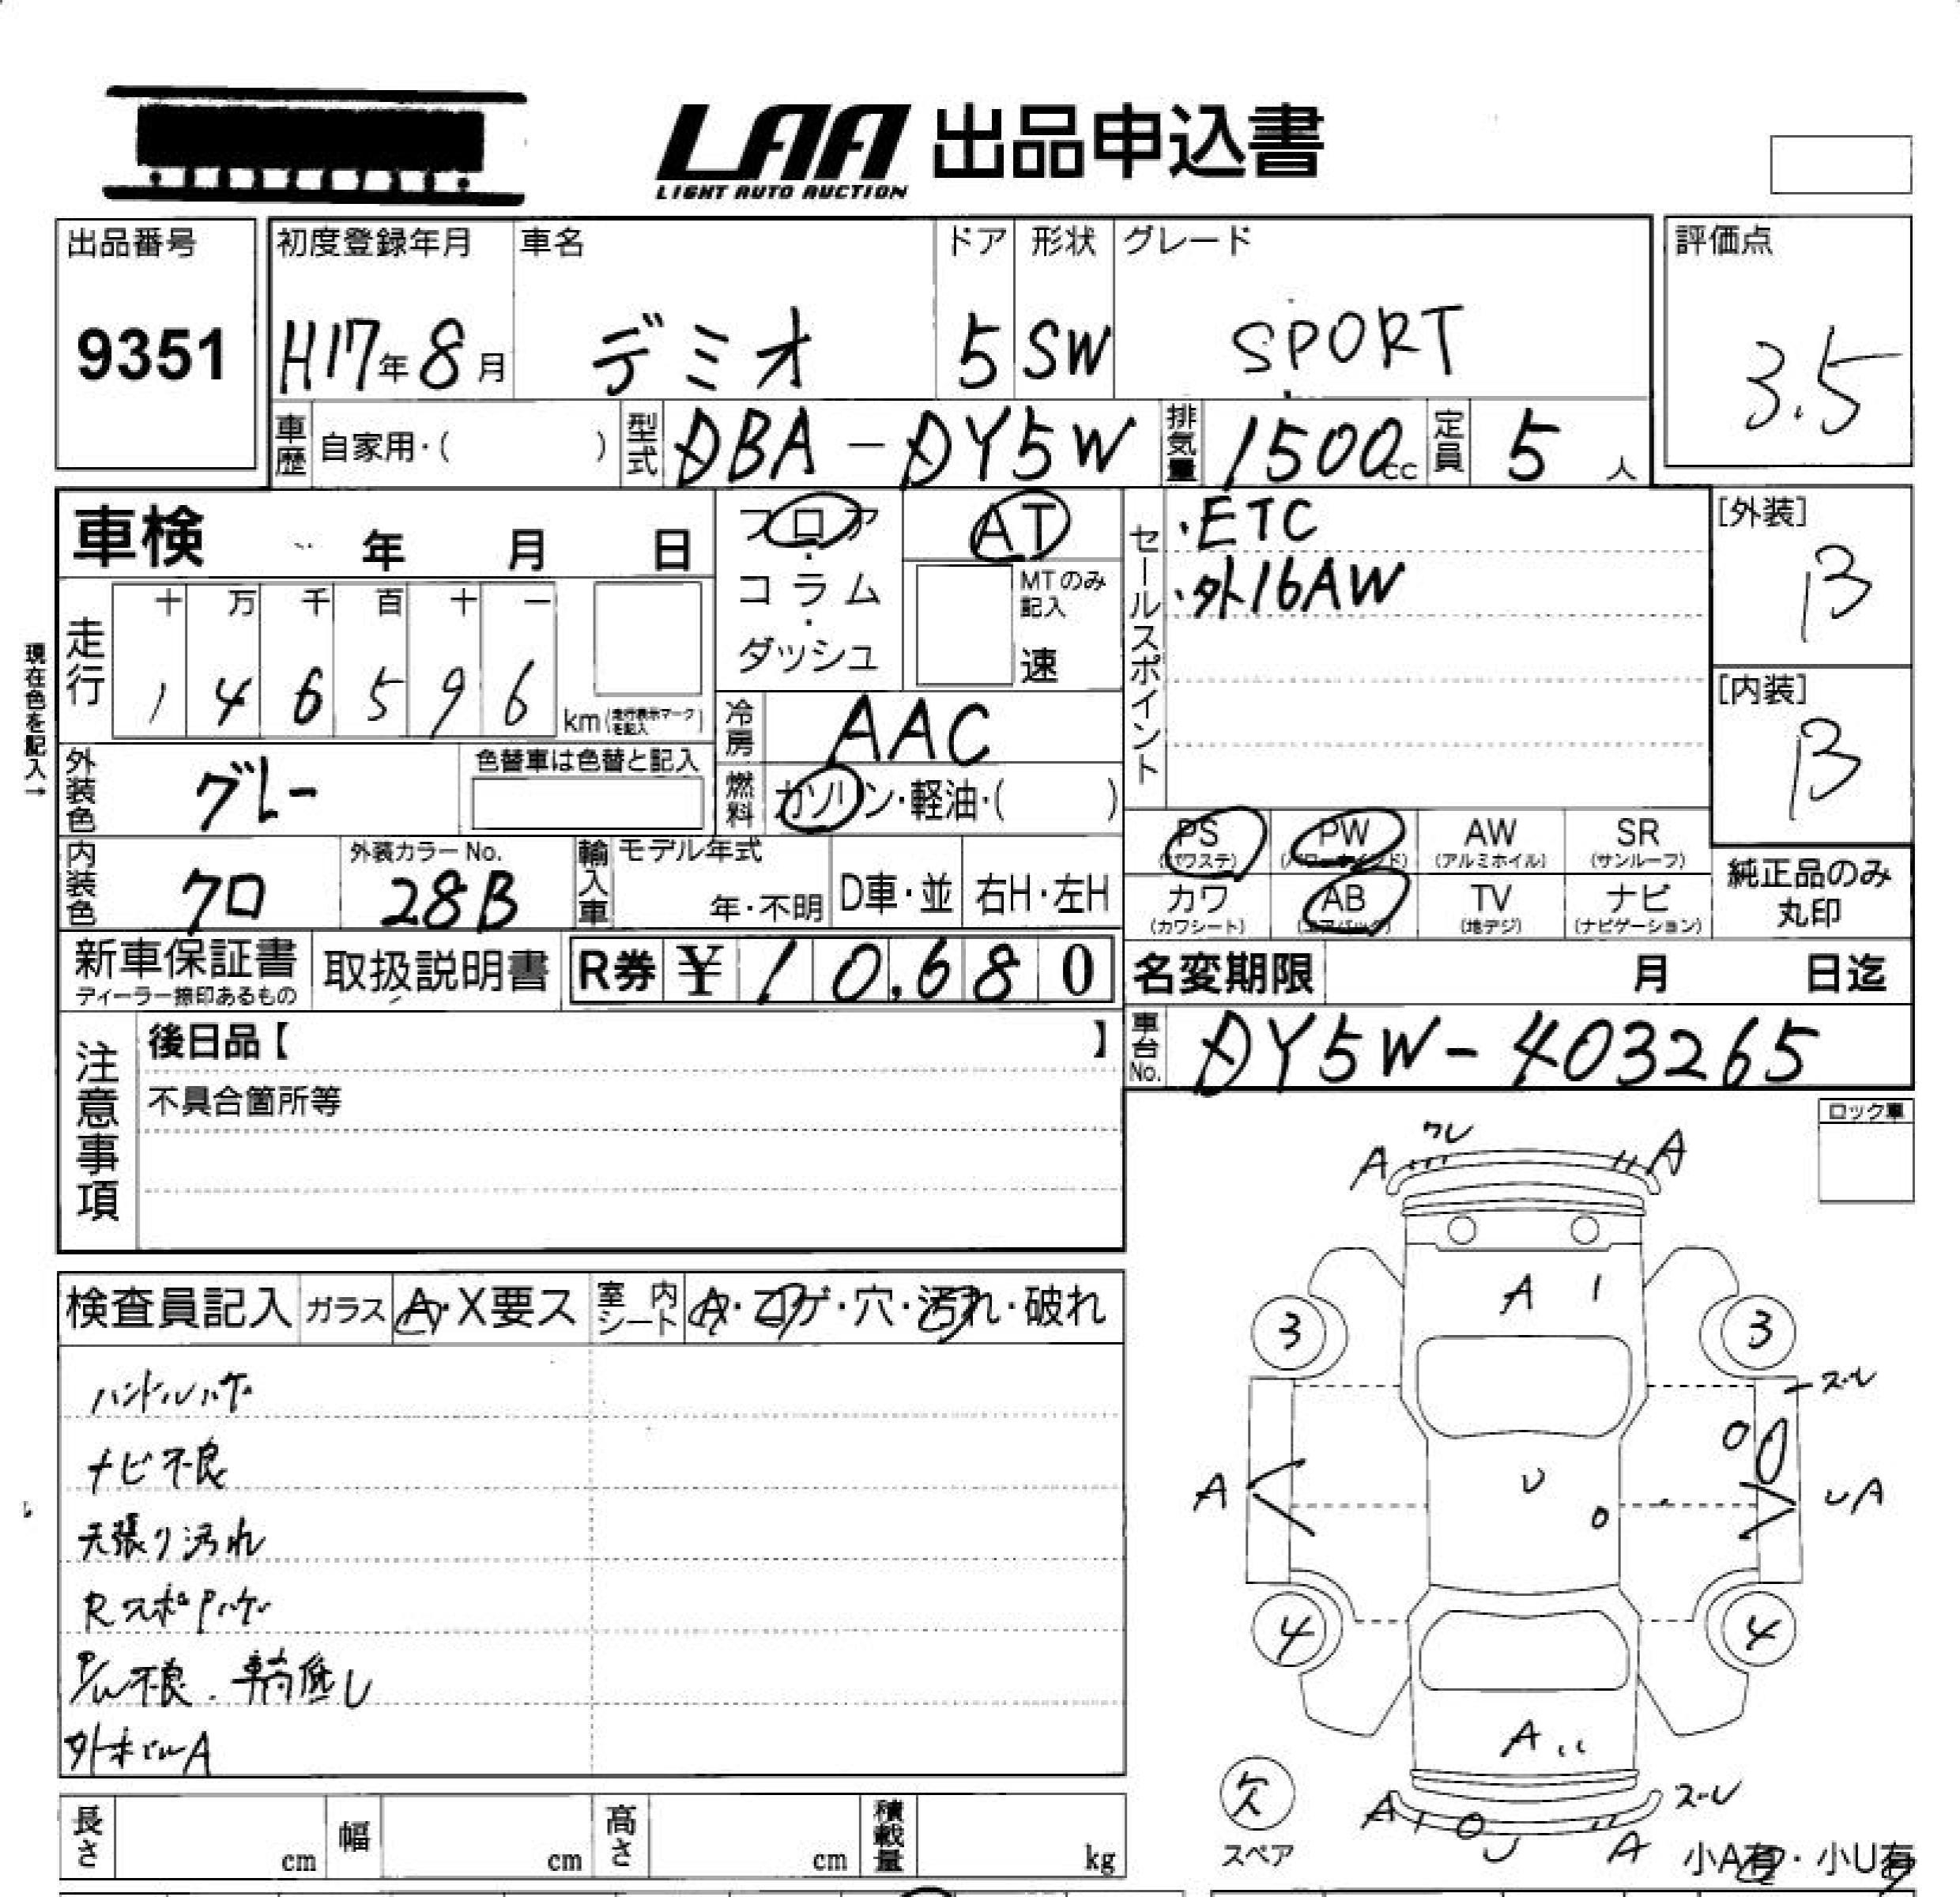 LAA 出品申込書
LIGHT AUTO AUCTION
出品番号 初度登録年月 車名 ドア 形状 グレード 評価点
9351 H17年8月 デミオ 5 SW SPORT 3.5
車歴 自家用・( ) 型式 DBA-DY5W 排気量 1500cc 定員 5人
車検 年 月 日 フロア・コラム・ダッシュ AT
MTのみ記入
速
セールスポイント
・ETC
・外16AW
[外装]
B
[内装]
B
現在色を記入→
走行 十 万 千 百 十 一
1 4 6 5 9 6 km(走行表示マークを記入)
冷房 AAC
外装色 グレー 色替車は色替と記入
燃料 ガソリン・軽油・( )
内装色 クロ 外装カラーNo. 28B
輸入車 モデル年式 年・不明 D車・並 右H・左H
PS (パワステ) PW (パワーウインド) AW (アルミホイル) SR (サンルーフ)
カワ (カワシート) AB (エアバッグ) TV (地デジ) ナビ (ナビゲーション)
純正品のみ
丸印
新車保証書 取扱説明書 R券 ¥ 10,680
ディーラー捺印あるもの
名変期限 月 日迄
車台No. DY5W-403265
注意事項
後日品【 】
不具合箇所等
ロック車
ワレ
A A
A 1
3 3
スレ
A U UA
4 4
A
スレ
A U A
欠
スペア
小A有・小U有
検査員記入 ガラス A・X要ス 室内シート A・コゲ・穴・汚れ・破れ
ハンドルハゲ
ナビ不良
天張り汚れ
RスポPハゲ
P/W不良.車輪無し
外ホイルA
長さ cm 幅 cm 高さ cm 積載量 kg